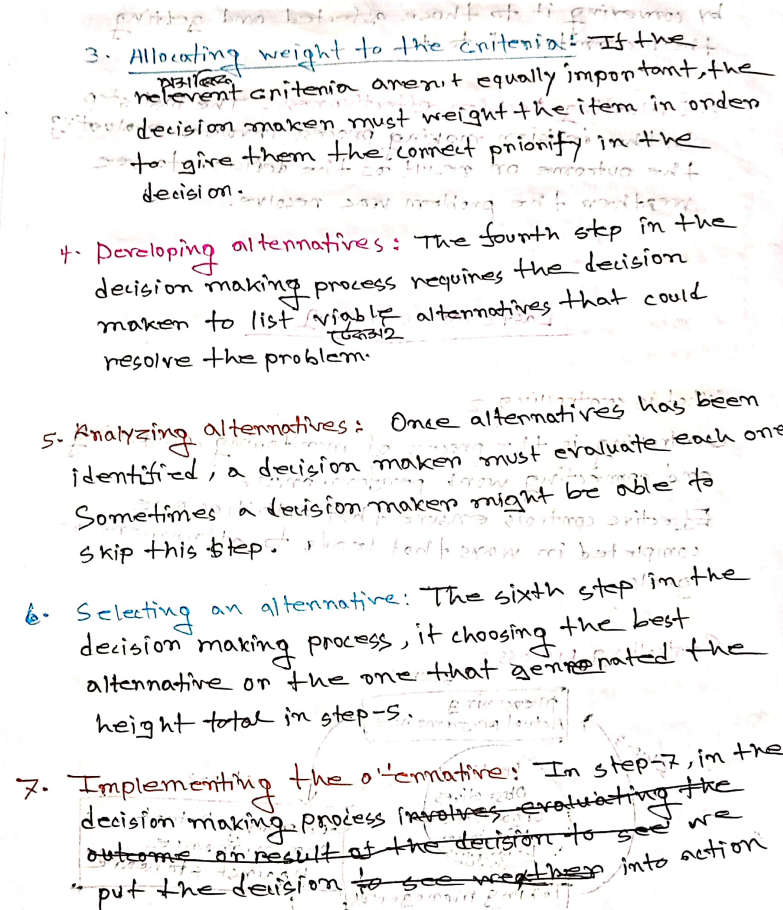 3. Allocating weight to the criteria: If the
প্রাসঙ্গিক
relevent criteria aren't equally important, the
decision maker must weight the item in order
to give them the correct priority in the
decision.
4. Developing alternatives: The fourth step in the
decision making process requires the decision
maker to list viable alternatives that could
টেকসই
resolve the problem.
5. Analyzing alternatives: Once alternatives has been
identified, a decision maker must evaluate each one
Sometimes a decision maker might be able to
skip this step.
6. Selecting an alternative: The sixth step in the
decision making process, it choosing the best
alternative or the one that generated the
height total in step-5.
7. Implementing the alternative: In step-7, in the
decision making process involves evaluating the
outcome or result of the decision to see we
put the decision to see weather into action